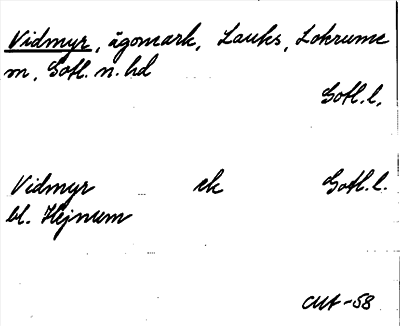 Vidmyr, ägomark, Lauks, Lokrume
m, Gotl. n. hd
Gotl. l.
Vidmyr ek Gotl. l.
bl. Hejnum
CMA-58